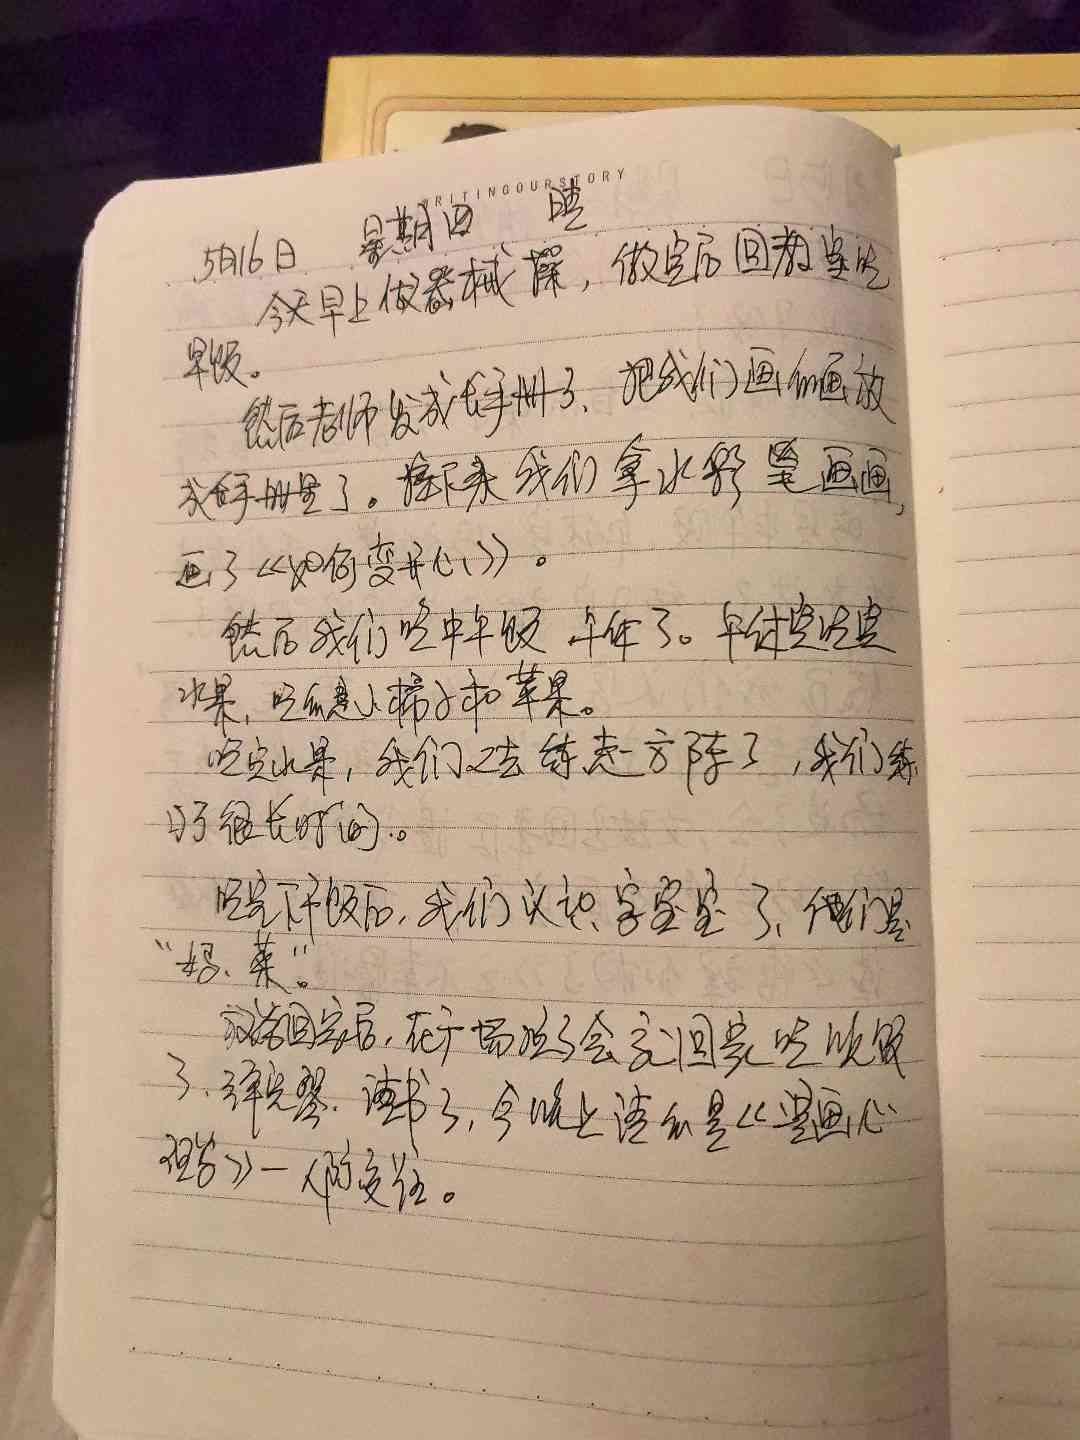 WRITINGOURSTORY
5月16日 星期四 晴
今天早上做器械操，做完后回教室吃
早饭。
然后老师发成长手册了、把我们画的画放
成长手册里了。接下来我们拿水彩笔画画，
画了《如何变开心》。
然后我们吃中午饭 午休了。午休完吃完
水果，吃的是小橘子和苹果。
吃完水果，我们又去练走方阵了，我们练
了很长时间。
吃完下午饭后，我们认识字宝宝了、他们是
“妈、菜”。
回家后，在广场玩了会就回家吃晚饭
了、弹完琴、读书了，今晚上读的是《漫画心
理学》—人际交往。